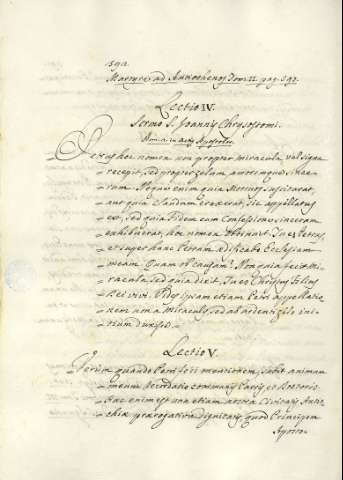 592.
Martyres ad Antiochenos Tom. II. pag. 592.
Lectio IV.
Sermo S. Joannis Chrysostomi.
Hom. in Acta Apostolor.
Petrus hoc nomen non propter miracula vel signa
recepit, sed propter zelum amoremque sincerum.
rum. Neque enim quia Mortuos suscitavit,
aut quia Claudum erexerat, sic appellatus
est, sed quia fidem cum Confessione sinceram
exhibuerat, hoc nomen obtinuit. Tu es Petrus,
et super hanc Petram aedificabo Ecclesiam
meam. Quam ob causam? Non quia fecit Mi-
racula, sed quia dixit. Tu es Christus Filius
Dei vivi. Vides ipsam etiam Petri appellatio-
nem non a Miraculis, sed ab ardenti zelo ini-
tium duxisse.
Lectio V.
Verum quando Petri feci mentionem, subit animum
meum
haec enim est una etiam nostrae Civitatis Antio-
chiae praerogativa dignitatis, quod Principem
Aposto-